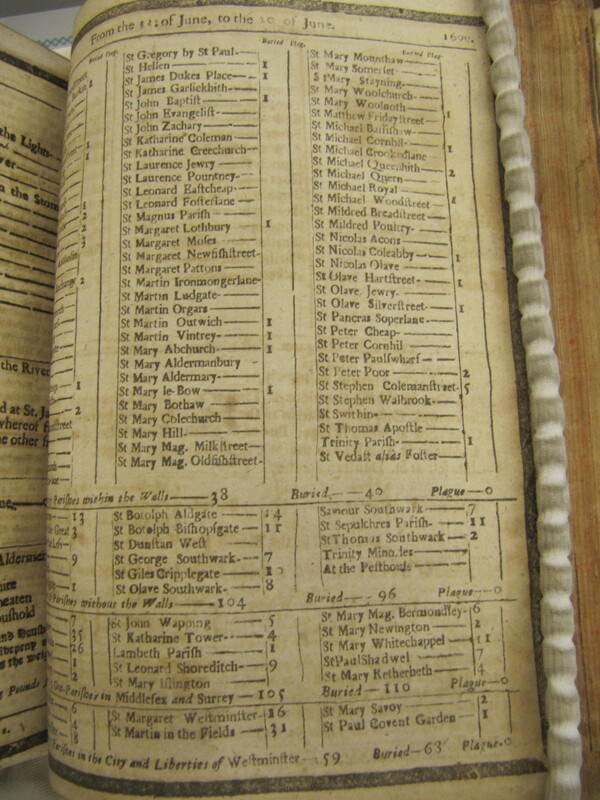 From the of June, to the of June.
Buried Plag.
St Gregory by St Paul
St Hellen 1
St James Dukes Place 1
St James Garlickhith
St John Baptiſt 1
St John Evangeliſt
St John Zachary
St Katharine Coleman
St Katharine Creechurch
St Laurence Jewry
St Laurence Pountney
St Leonard Eaſtcheap
St Leonard Foſterlane
St Magnus Pariſh
St Margaret Lothbury 1
St Margaret Moſes
St Margaret Newfiſhſtreet
St Margaret Pattons
St Martin Ironmongerlane
St Martin Ludgate
St Martin Orgars
St Martin Outwich 1
St Martin Vintrey 1
St Mary Abchurch 1
St Mary Aldermanbury
St Mary Aldermary
St Mary le Bow 1
St Mary Bothaw
St Mary Colechurch
St Mary Hill
St Mary Mag. Milkſtreet
St Mary Mag. Oldfiſhſtreet
Buried Plag
St Mary Mounthaw
St Mary Somerſet
St Mary Stayning
St Mary Woolchurch
St Mary Woolnoth
St Matthew Fridayſtreet 1
St Michael Baſiſhaw
St Michael Cornhil
St Michael Crookedlane 1
St Michael Queenhith
St Michael Quern 2
St Michael Royal
St Michael Woodſtreet 1
St Mildred Breadſtreet
St Mildred Poultry
St Nicolas Acons
St Nicolas Coleabby 1
St Nicolas Olave
St Olave Hartſtreet 1
St Olave Jewry
St Olave Silverſtreet 1
St Pancras Soperlane
St Peter Cheap
St Peter Cornhil
St Peter Paulſwharf
St Peter Poor 2
St Stephen Colemanſtreet 5
St Stephen Walbrook
St Swithin
St Thomas Apoſtle
Trinity Pariſh 1
St Vedaſt alias Foſter
Pariſhes within the Walls 38 Buried 40 Plague 0
St Botolph Aldgate 14
St Botolph Biſhopſgate 11
St Dunſtan Weſt
St George Southwark 7
St Giles Cripplegate
St Olave Southwark 8
Saviour Southwark 7
St Sepulchres Pariſh 11
St Thomas Southwark 2
Trinity Minories
At the Peſthouſe
Pariſhes without the Walls 104 Buried 96 Plague 0
St John Wapping 5
St Katharine Tower 4
Lambeth Pariſh 1
St Leonard Shoreditch 9
St Mary Iſlington
St Mary Mag. Bermondſey 6
St Mary Newington 2
St Mary Whitechappel 11
St Paul Shadwel 7
St Mary Retherheth 4
Out-Pariſhes in Middleſex and Surrey 105 Buried 110 Plague 0
St Margaret Weſtminſter
St Martin in the Fields 31
St Mary Savoy 2
St Paul Covent Garden 1
Pariſhes in the City and Liberties of Weſtminſter 59 Buried 63 Plague 0